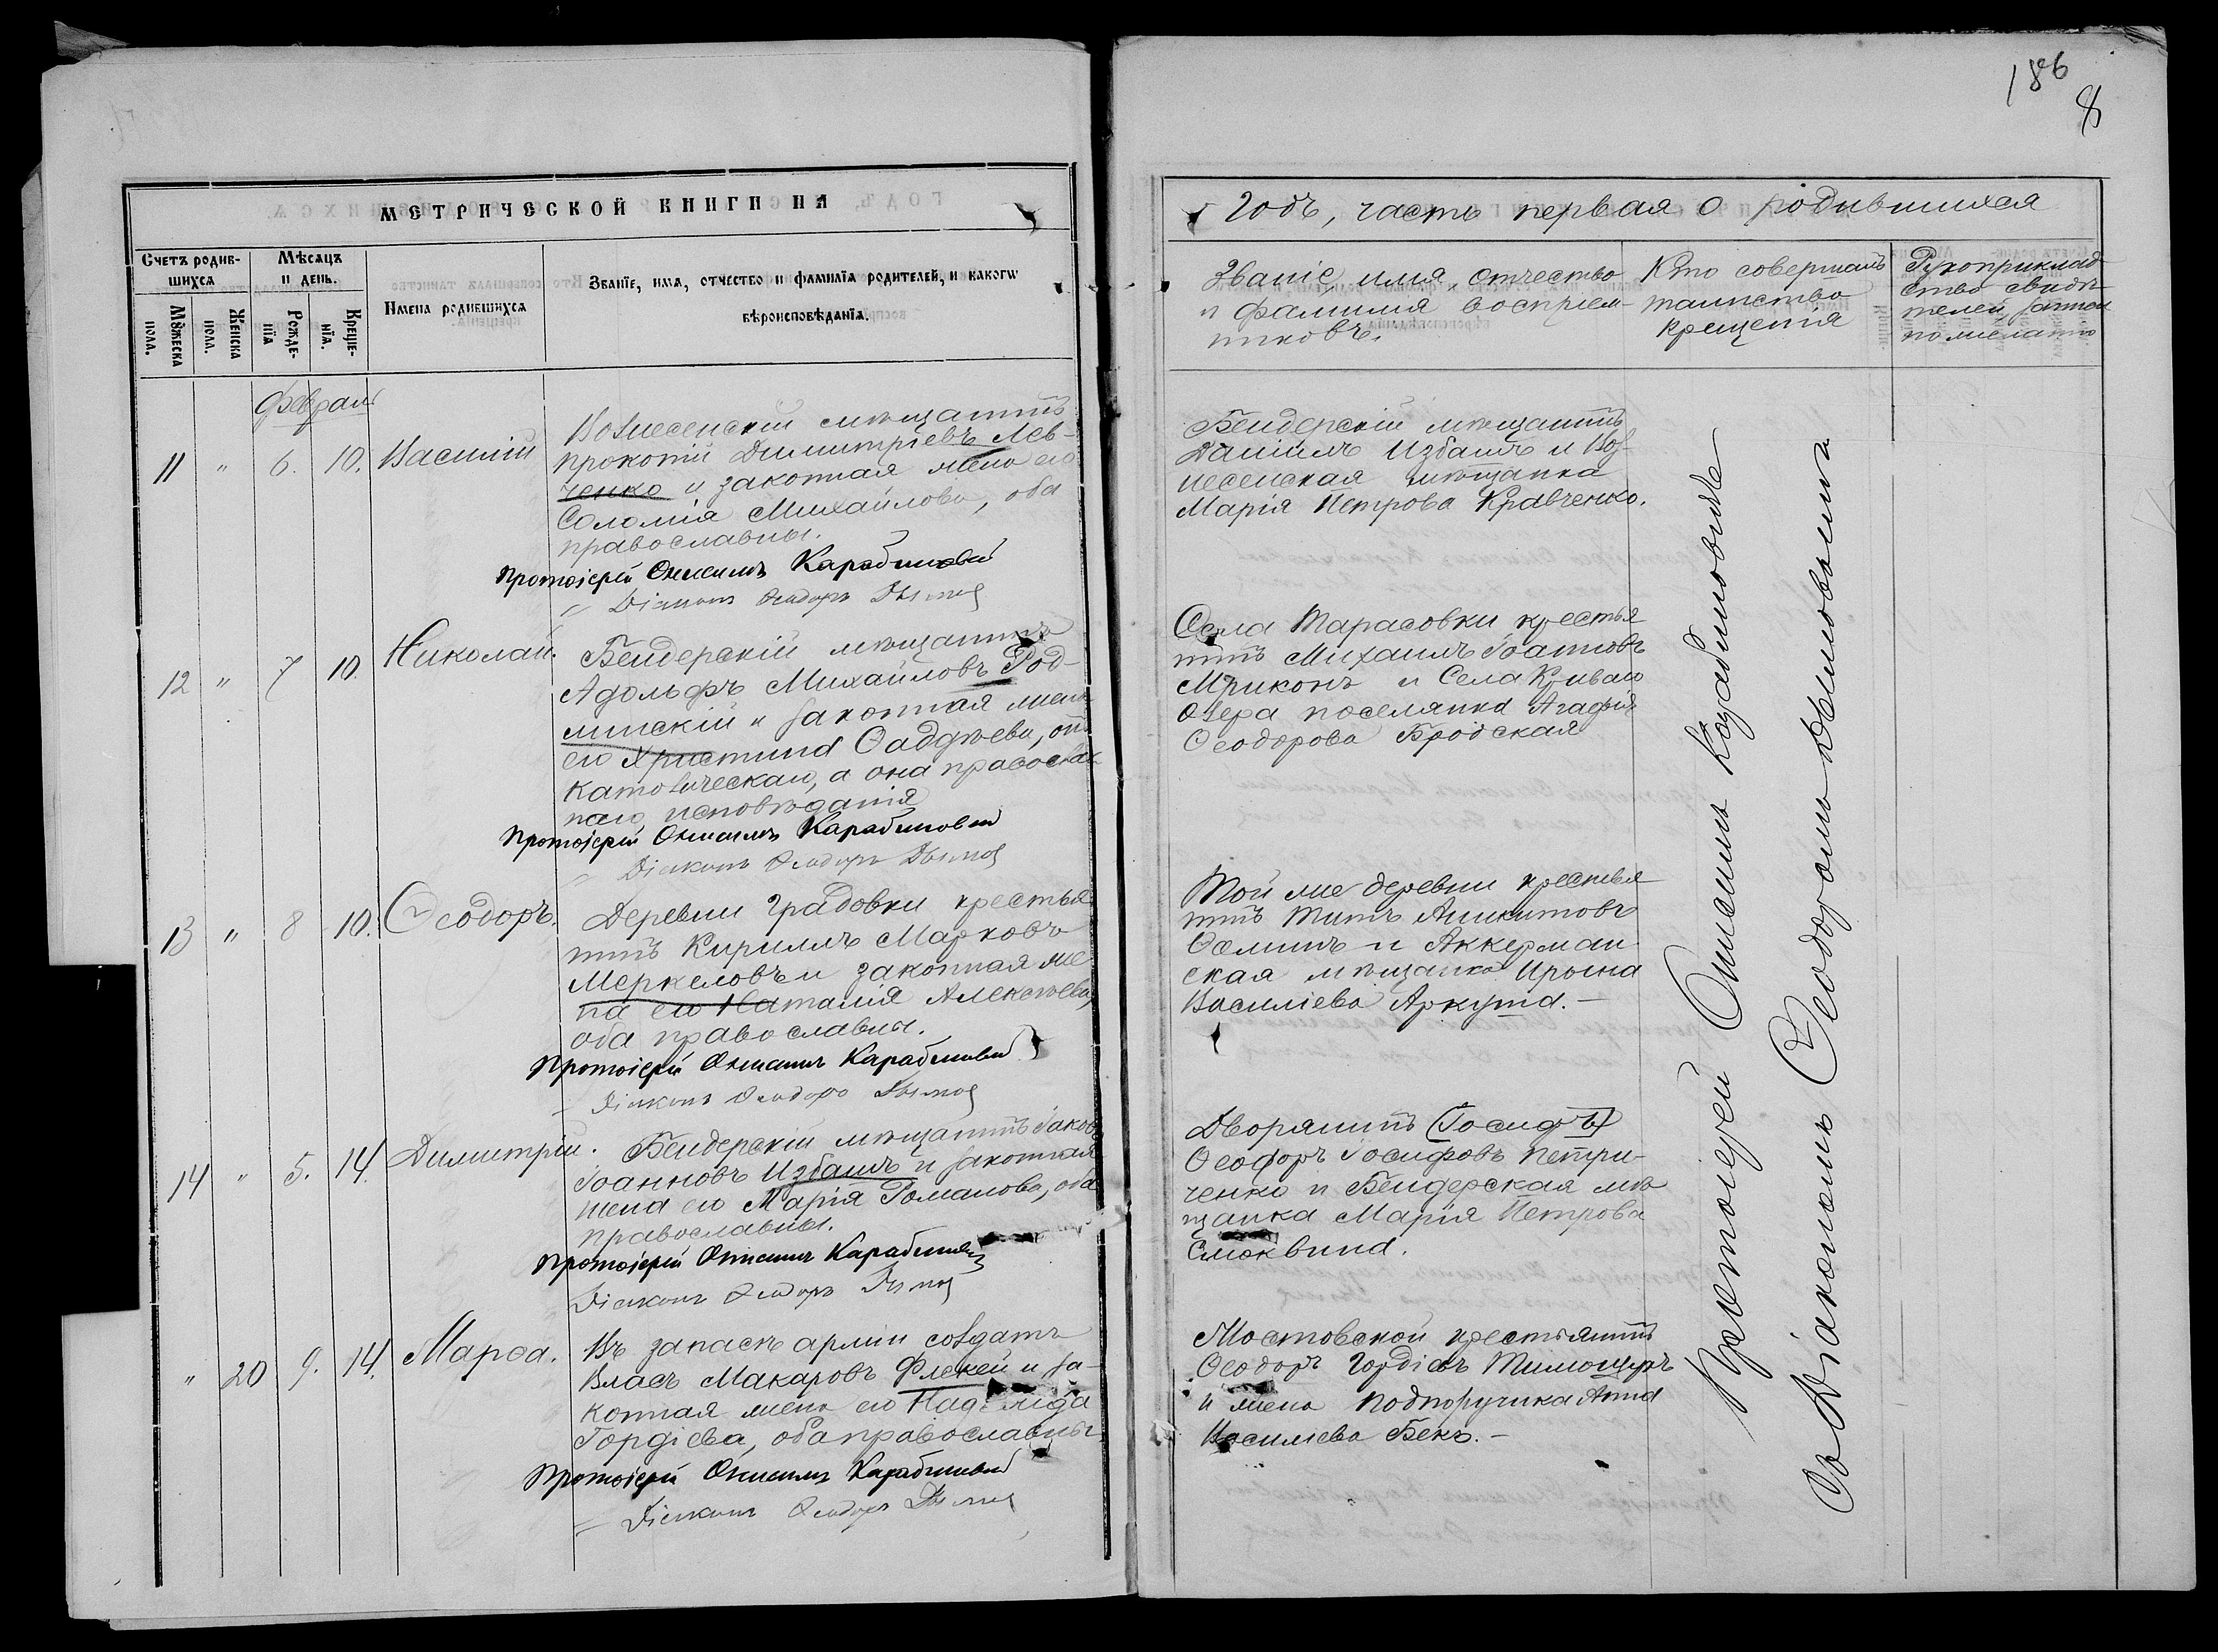 186
8
МЕТРИЧЕСКОЙ КНИГИ НА
Годъ, часть первая о родившихся
Счетъ родив-
шихся
Мужеска
пола.
Женска
пола.
Мѣсяцъ
и день.
Рожде-
нія
Креще-
нія.
Имена родившихся
Званіе, имя, отчество и фамилія родителей, и какого
вѣроисповѣданія.
Званіе, имя, отчество
и фамилия восприем-
никовъ.
Кто совершалъ
таинство
крещенія
Рукоприклад-
ство свидѣ-
телей записи
по желанію
Февраль
11 " 6. 10. Василій
Вознесенскій мѣщанинъ
Прокопій Димитріевъ Лев-
ченко и законная жена его
Соломія Михайлова, оба
православны.
Протоіерей Онисимъ Карабиновъ
Діаконъ Ѳеодоръ
Бендерскій мѣщанинъ
Даніилъ Избашъ и Воз-
несенская мѣщанка
Марія Петрова Кравченко.
12 " 7 10. Николай.
Бендерскій мѣщанинъ
Адольфъ Михайловъ Род-
минскій и законная жена
его Христина Ѳаддѣева, онъ
католическаго, а она православ-
наго исповѣданія
Протоіерей Онисимъ Карабиновъ
Діаконъ Ѳеодоръ
Села Тарасовки крестья
нинъ Михаилъ Іоанновъ
Мриконъ и Села Криваго
Озера поселянка Агафія
Ѳеодорова Бродская
13 " 8 10. Ѳеодоръ.
Деревни Градовки крестья
нинъ Кириллъ Марковъ
Меркеловъ и законная же
на его Наталія Алексѣева,
оба православны.
Протоіерей Онисимъ Карабиновъ
Діаконъ Ѳеодоръ
Той же деревни крестья
нинъ Титъ Аникитовъ
Ѳоминъ и Аккерман-
ская мѣщанка Ирина
Василіева Аркуша.-
14 " 5. 14. Димитрій.
Бендерскій мѣщанинъ Іаковъ
Іоанновъ Избашъ и законная
жена его Марія Романова, оба
православны.
Протоіерей Онисимъ Карабиновъ
Діаконъ Ѳеодоръ
Дворянинъ (Іосифъ)
Ѳеодоръ Іосифовъ Петри-
ченко и Бендерская мѣ
щанка Марія Петрова
Смоквина.
" 20 9. 14. Марѳа.
Въ запасѣ арміи солдатъ
Власъ Макаровъ Флекей и за-
конная жена его Надежда
Гордіева, оба православны.
Протоіерей Онисимъ Карабиновъ
Діаконъ Ѳеодоръ
Мостовской крестьянинъ
Ѳеодоръ Гордіевъ Тимощукъ
и жена подпоручика Анна
Василіева Бекъ.-
Протоіерей Онисимъ Карабиновъ
съ Діакономъ Ѳеодоромъ